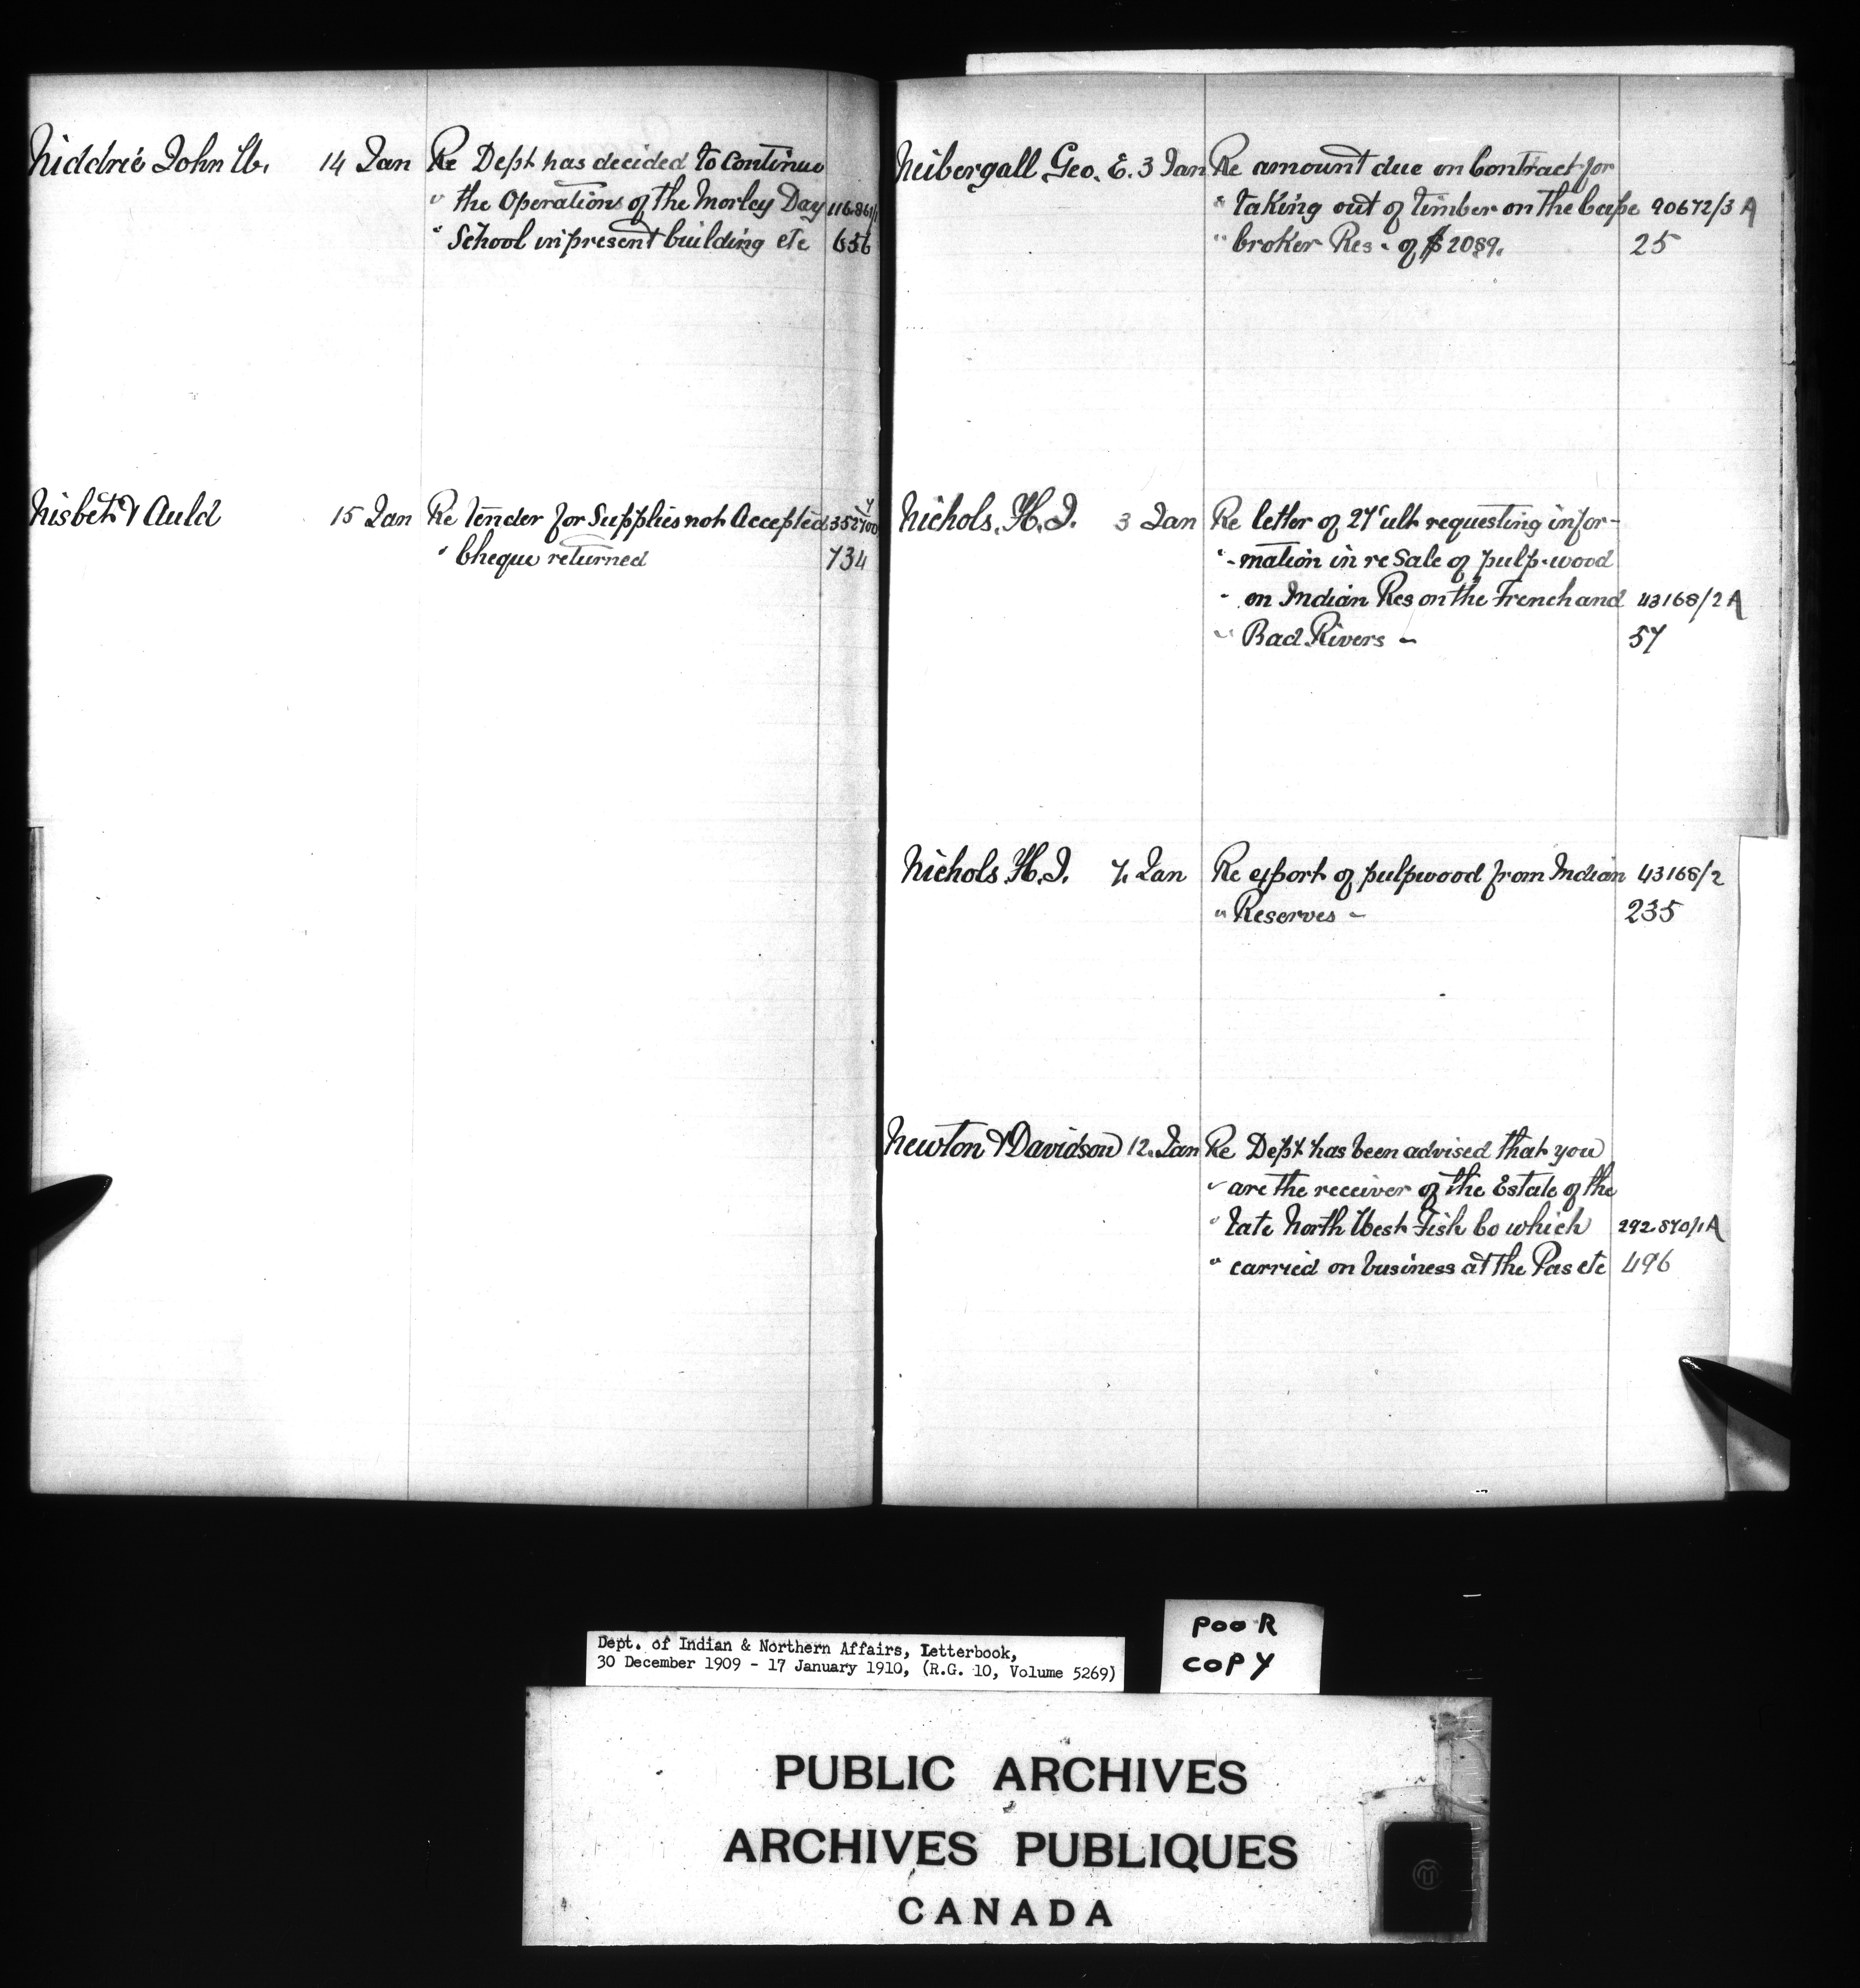 Niddrie John W. 14 Jan Re Dept has decided to continue
" the Operations of the Morley Day 116.861/1
" School in present building etc 656
Nisbet & Auld 15 Jan Re Tender for Supplies not Accepted 352700
" Cheque returned 734
Neibergall Geo. E. 3 Jan Re amount due on Contract for
" Taking out of timber on the Cape 90672/3 A
" Croker Res. of $2089. 25
Nichols. H.J. 3 Jan Re letter of 27 ult requesting infor-
" -mation in re Sale of pulp-wood
" on Indian Res on the French and 43168/2 A
" Bad Rivers - 57
Nichols. H.J. 7. Jan Re export of pulpwood from Indian 43168/2
" Reserves - 235
Newton & Davidson 12. Jan Re Dept has been advised that you
" are the receiver of the Estate of the
" late North West Fish Co which 292.870/1 A
" carried on business at the Pas etc 496
Dept. of Indian & Northern Affairs, Letterbook,
30 December 1909 - 17 January 1910, (R.G. 10, Volume 5269)
POOR
COPY
PUBLIC ARCHIVES
ARCHIVES PUBLIQUES
CANADA